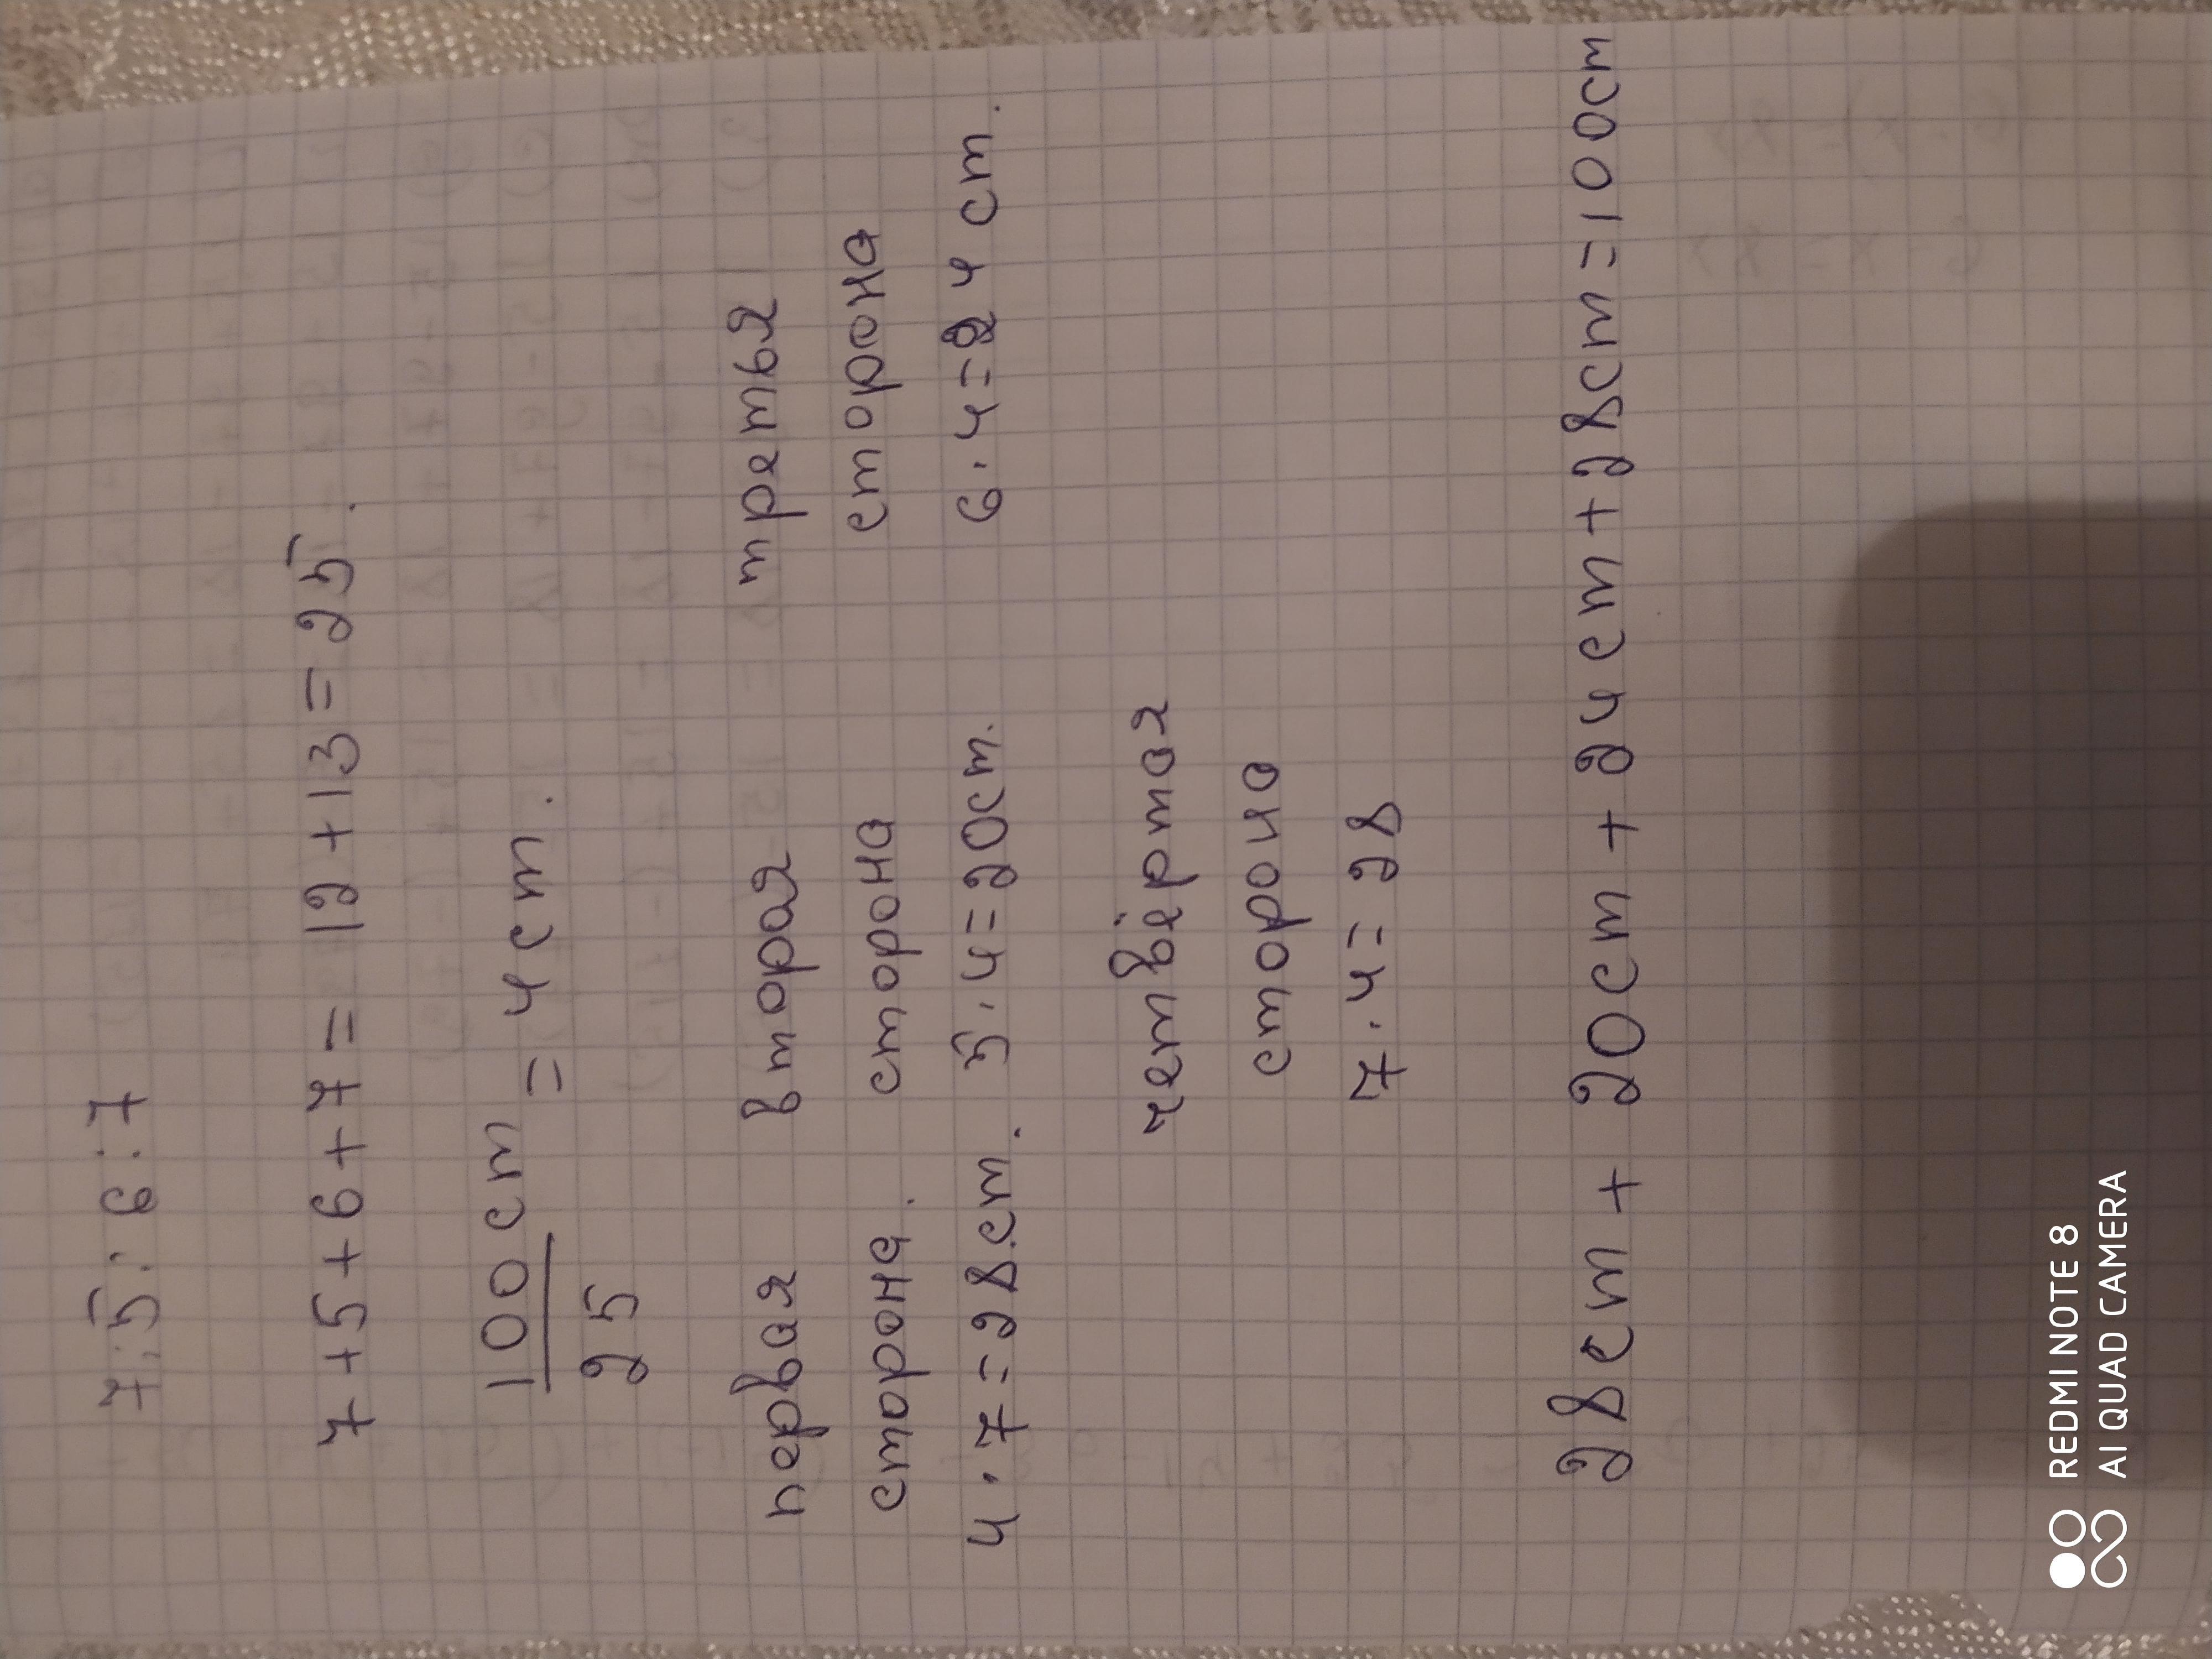 7:5:6:7
7+5+6+7= 12+13=25.
100cm
25
= 4cm.
первая
сторона.
4·7=28.cm.
вторая
сторона
5·4=20cm.
третья
сторона
6·4=24cm.
четвёртая
сторона
7·4=28
28cm+20cm+24cm+28cm=100cm
REDMI NOTE 8
AI QUAD CAMERA